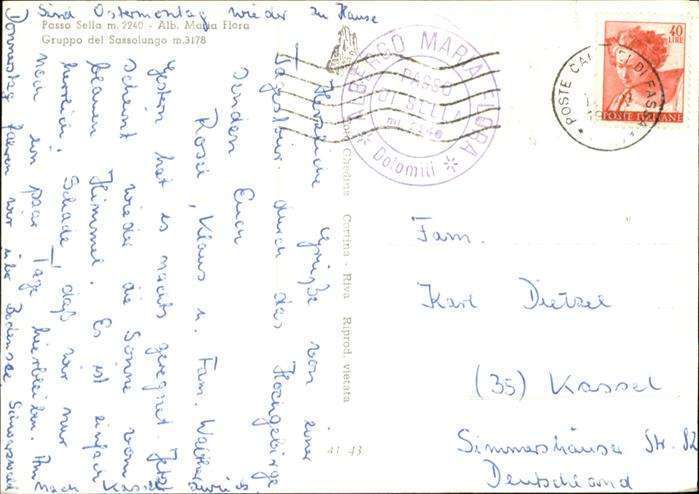 Passo Sella m. 2240 - Alb. Maria Flora
Gruppo del Sassolungo m. 3178
Herzliche Grüße von einer
Tagestour durch das Hochgebirge
senden Euch
Rosie, Klaus u. Fam. Walther
Gestern hat es nachts geregnet. Jetzt
scheint wieder die Sonne vom
blauen Himmel. Es ist einfach
herrlich. Schade, daß wir nur
noch ein paar Tage hierbleiben. Am
Donnerstag fahren wir über Bodensee, Schwarzwald
nach Kassel zurück.
Sind Ostermontag wieder zu Hause
Cortina - Riva Riprod. vietata
41 43
ALBERGO MARIA FLORA
PASSO
DI SELLA
mt. 2240
* Dolomiti *
POSTE DI FASSA
40
LIRE
POSTE ITALIANE
Fam.
Karl Dietzel
(35) Kassel
Simmershäuser Str. 82
Deutschland